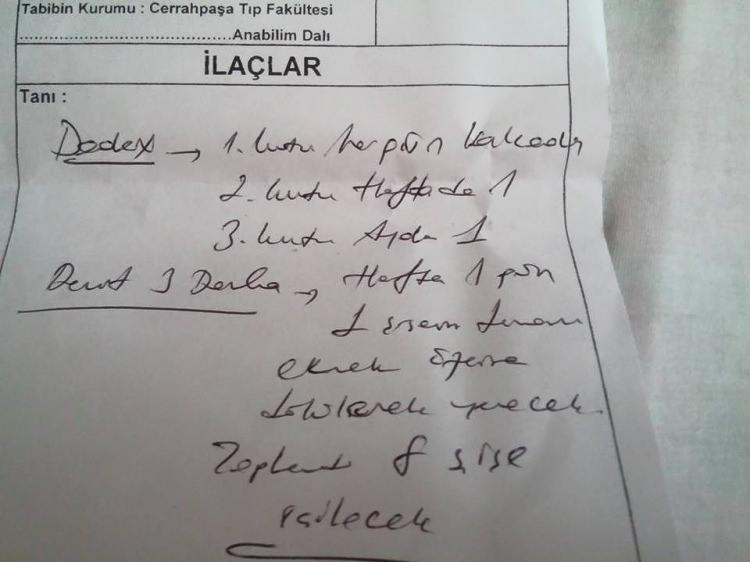 Tabibin Kurumu : Cerrahpaşa Tıp Fakültesi
........................................Anabilim Dalı
İLAÇLAR
Tanı :
Dodex → 1. kutu her gün kalçadan
2. kutu Haftada 1
3. kutu Ayda 1
Devit 3 Damla → Hafta 1 gün
1 şişenin tamamı
ekmek üzerine
dökülerek yenecek.
Toplam 8 şişe
içilecek